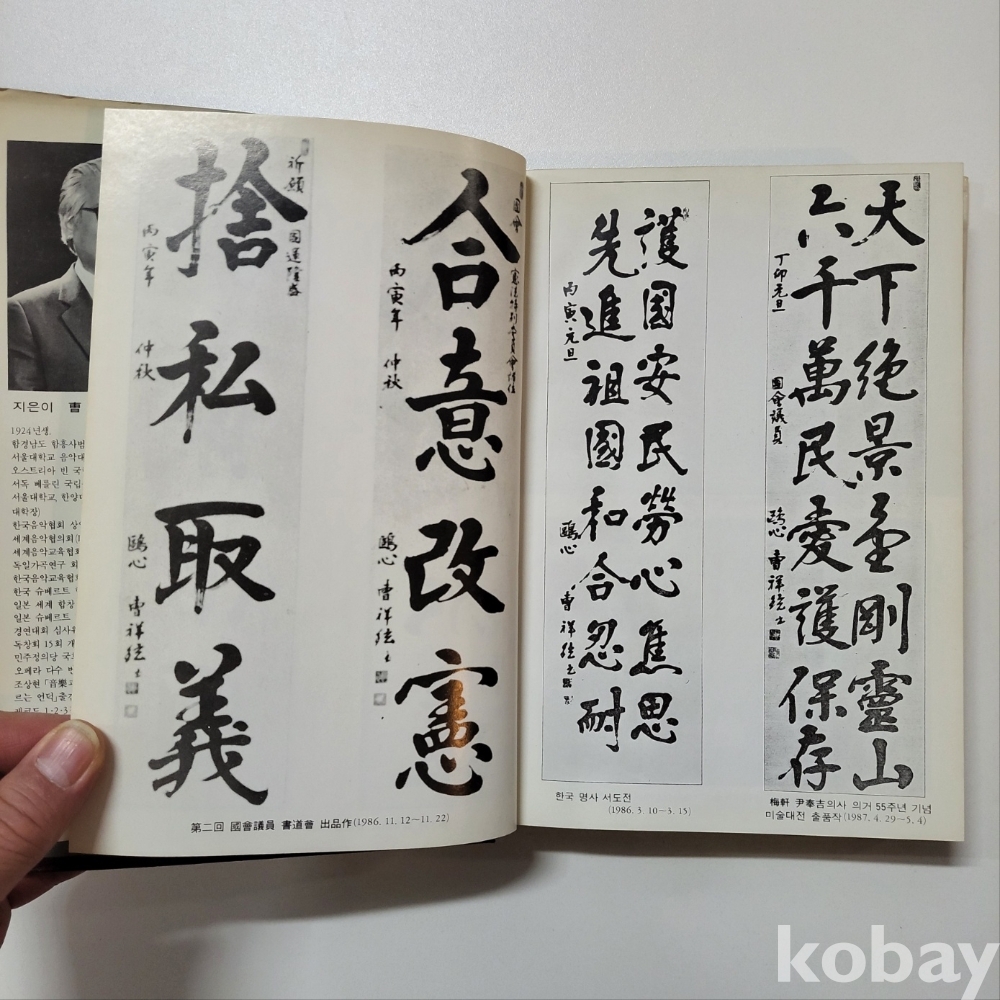 지은이 曺
1924년생.
함경남도 함흥사범
서울대학교 음악대
오스트리아 빈 국
서독 베를린 국립
서울대학교, 한양
대학장)
한국음악협회 상
세계음악협의회
세계음악교육협회
독일가곡연구 회
한국음악교육협
한국 슈베르트
일본 세계 합상
일본 슈베르트
경연대회 심사
독창회 15회 개
민주정의당 국
오페라 다수 번
조상현 「音樂
르는 언덕」출간
레코드 1·2·3
合意改憲
國會 憲法特別委員會
丙寅年 仲秋
鷗心 曺祥鉉
捨私取義
祈願 國運隆盛
丙寅年 仲秋
鷗心 曺祥鉉
第二回 國會議員 書道會 出品作(1986. 11. 12~11. 22)
護國安民勞心焦思
先進祖國和合忍耐
丙寅元旦
鷗心 曺祥鉉
한국 명사 서도전
(1986. 3. 10~3. 15)
天下絶景金剛靈山
六千萬民愛護保存
丁卯元旦
國會議員
鷗心 曺祥鉉
梅軒 尹奉吉의사 의거 55주년 기념
미술대전 출품작(1987. 4. 29~5, 4)
kobay